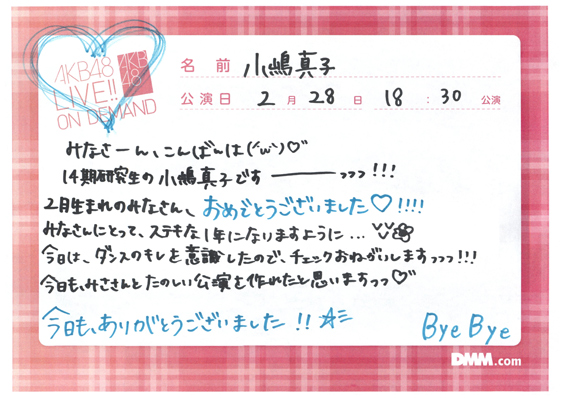 AKB48
LIVE!!
ON DEMAND
AKB
48
名 前 小嶋真子
公演日 2 月 28 日 18 : 30 公演
みなさーん、こんばんは(^ω^)♡
14期研究生の小嶋真子です――っっっ!!!
2月生まれのみなさん、おめでとうございました♡!!!!
みなさんにとって、ステキな1年になりますように...
今日は、ダンスのキレを意識したので、チェックおねがいしますっっっ!!!
今日も、みささんとたのしい公演を作れたと思いますっっ♡
今日も、ありがとうございました!!☆ミ
Bye Bye
DMM.com